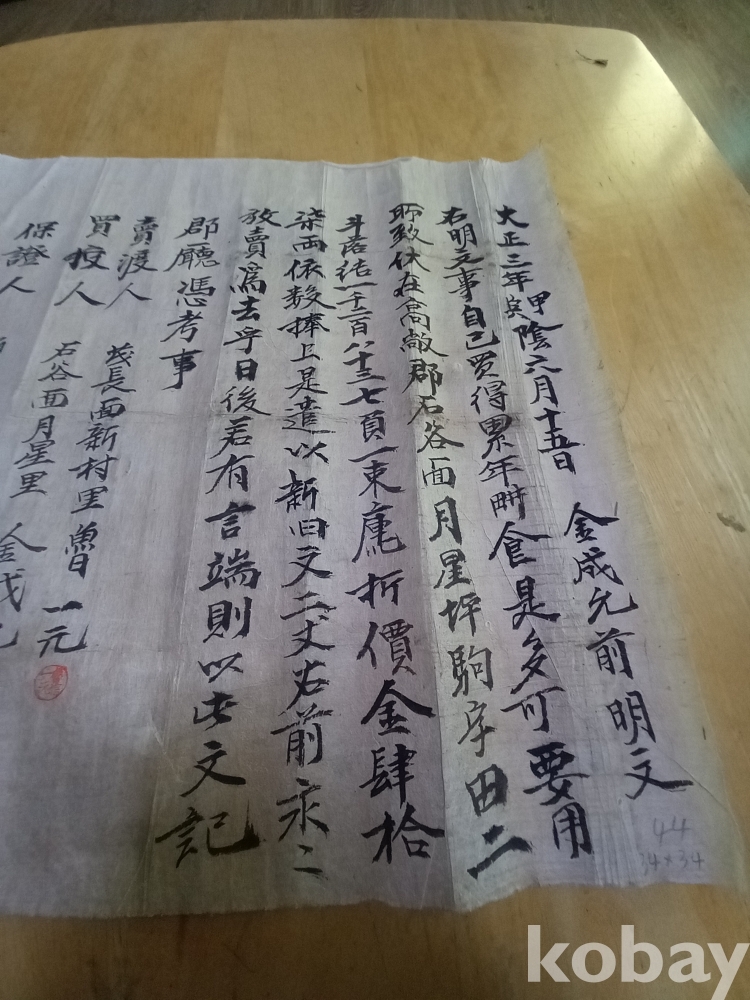 大正三年甲寅陰六月十五日 金成允前明文
右明文事自己買得累年畊食是多可要用
所致伏在高敞郡石谷面月星坪駒字田二
斗落結一千二百八十三七負一束廤折價金肆拾
柒兩依數捧上是遣以新旧文二丈右前永〻
放賣爲去乎日後若有言端則以此文記
郡廳憑考事
賣渡人 茂長面新村里 魯一元
買投人 石谷面月星里 金成
保證人
44
34×34
kobay